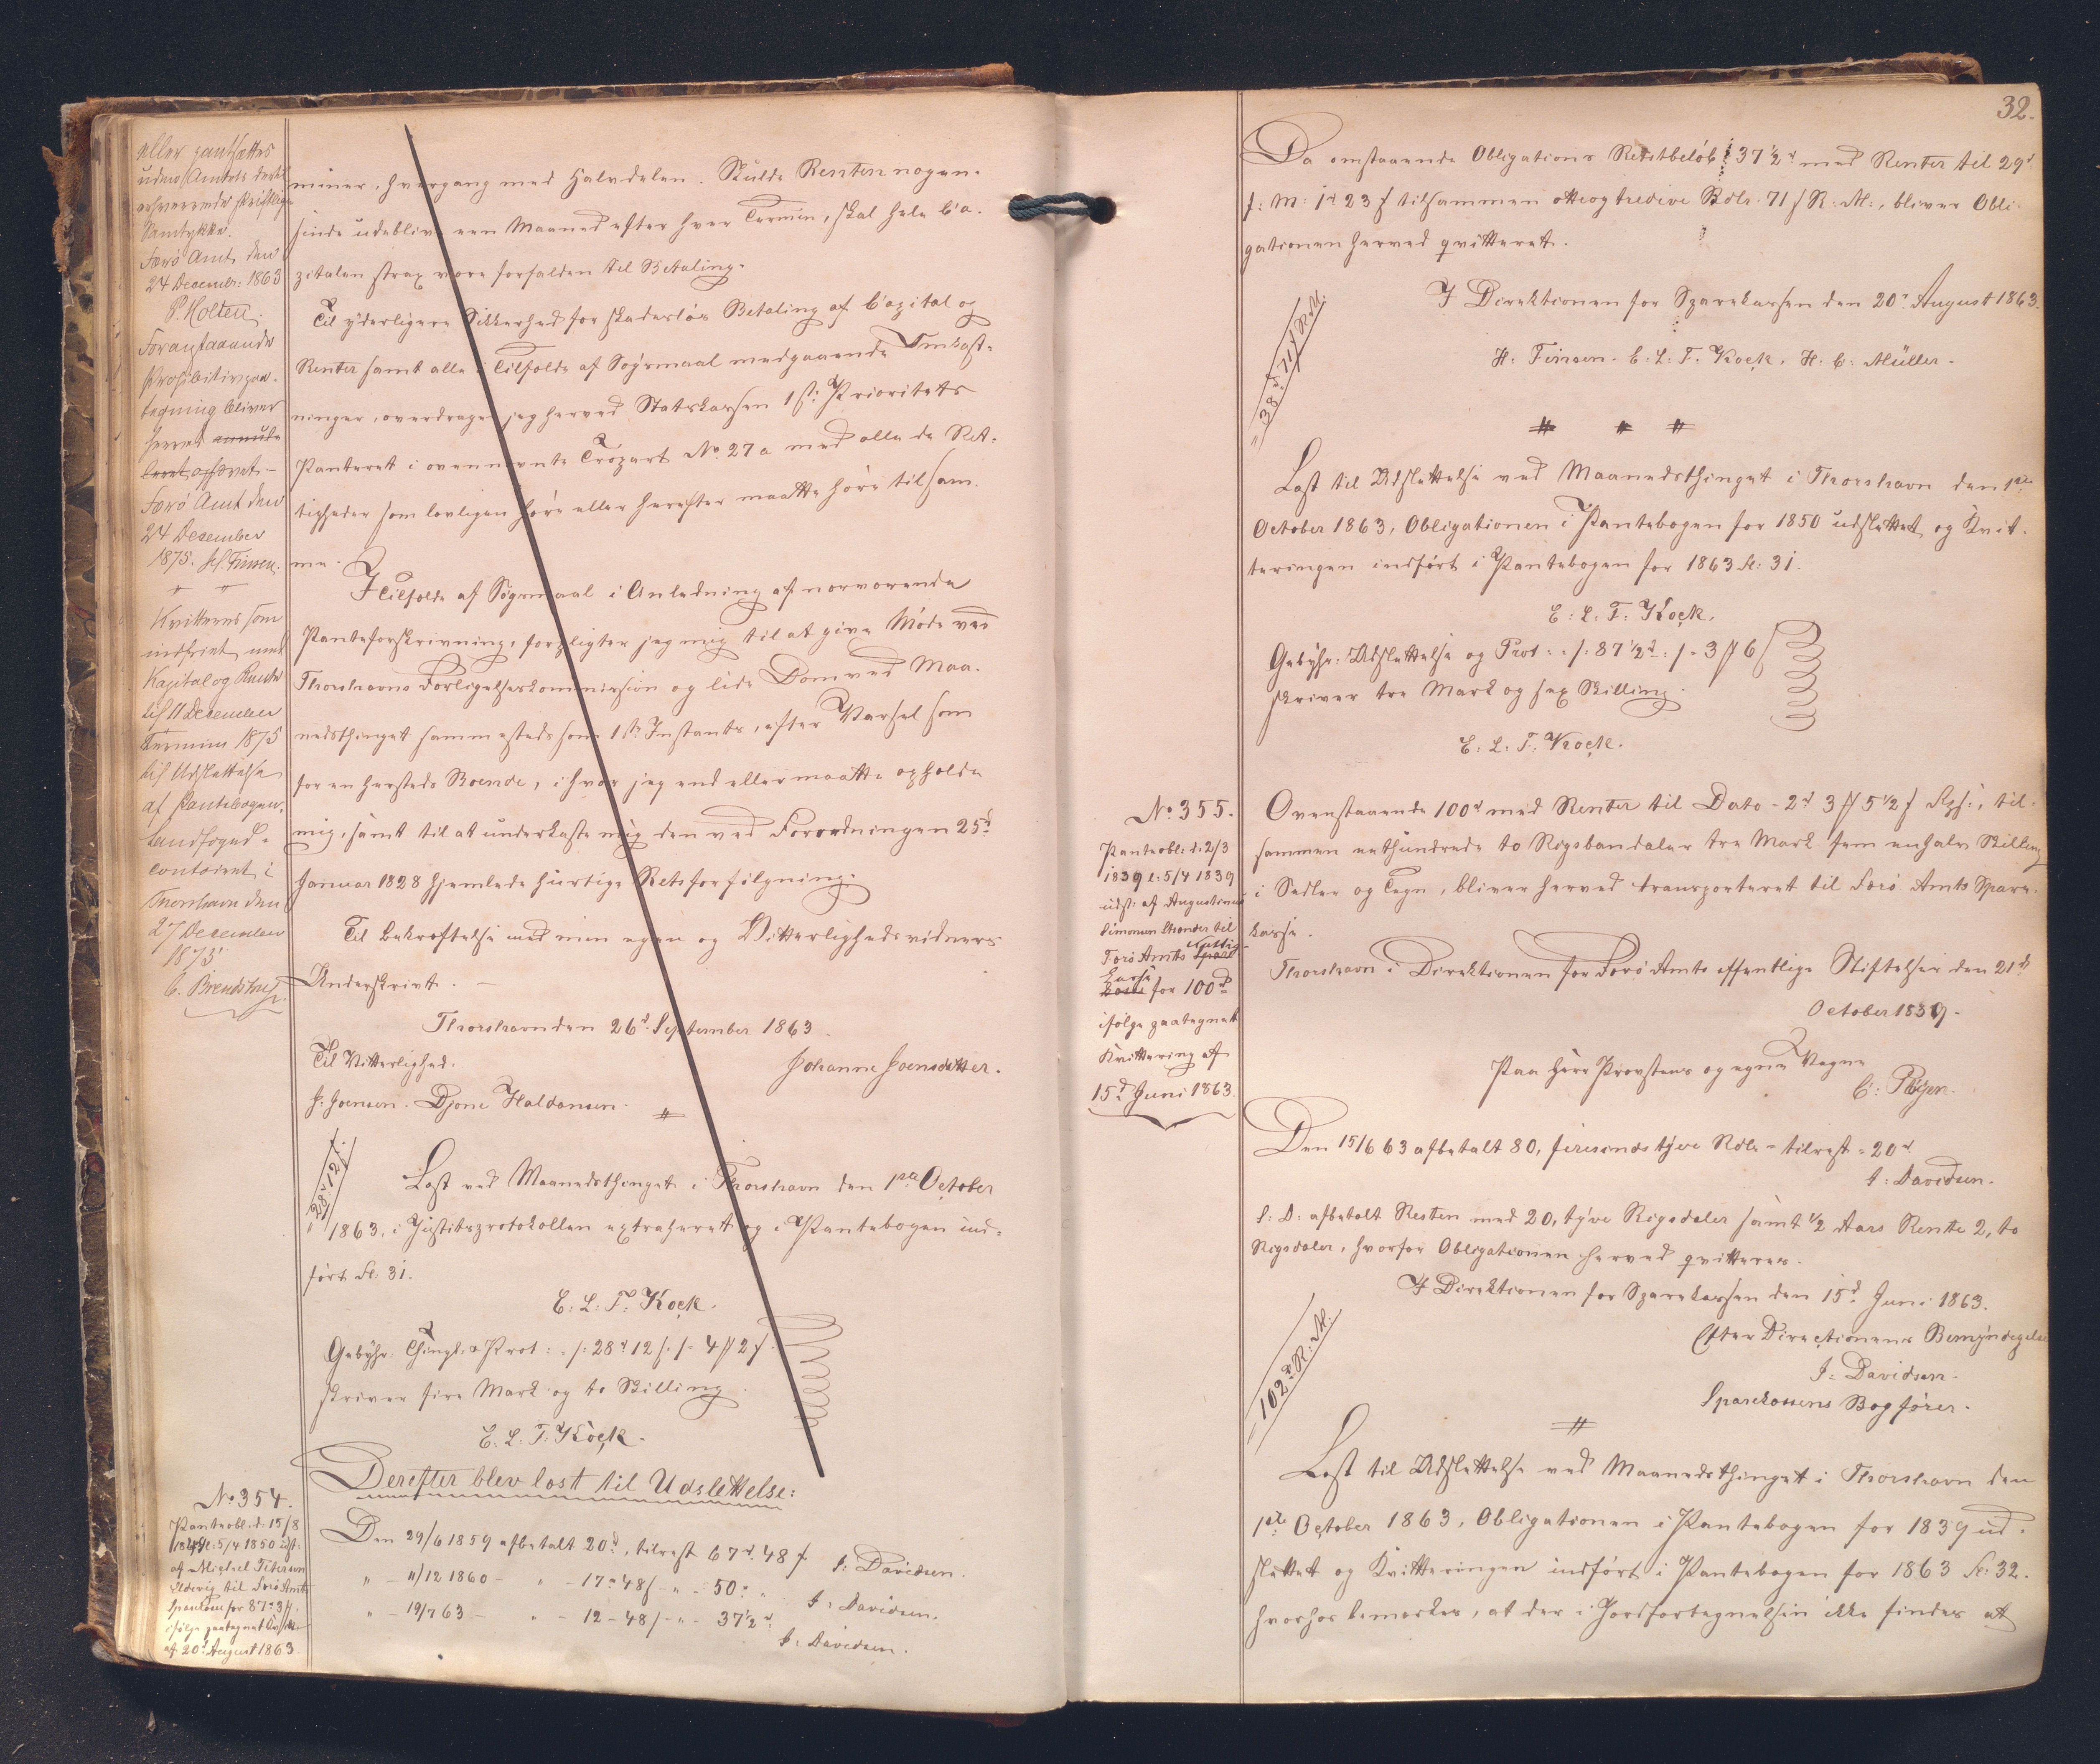 eller pantsættes
uden Amtets dertil
erhvervede skriftlige
Samtykke.
Færö Amt den
24 Decembr: 1863
P. Holten.
Foranstaaende
Prohibitivpaa-
tegning bliver
herved annule
leret ophævet. -
Færö Amt den
24 December
1875. H. Finsen.
Kvitteres som
indfriet med
Kapital og Rente
til 11 December
Termin 1875
til Udslettelse
af Pantebogen.
Landfoged-
contoiret i
Thorshavn den
27 December
1875
C. Brendstrup.
miner, hvergang med Halvdelen. Skulde Renten nogen-
sinde udeblive een Maaned efter hver Termin, skal hele Ca-
pitalen strax være forfalden til Betaling.
Til yderligere Sikkerhed for skadeslös Betaling af Capital og
Renter samt alle i Tilfælde af Sögsmaal medgaaende Omkost-
ninger, overdrager jeg herved Statskassen 1ste Prioritets
Panteret i ovennævnte Tröpart No. 27a med alle de Ret-
tigheder som lovligen höre eller herefter maatte höre til sam-
me.
I Tilfælde af Sögsmaal i Anledning af nærværende
Panteforskrivning, forpligter jeg mig til at give Möde ved
Thorshavns Forligelseskommission og lide Dom ved Maa-
nedsthinget sammesteds som 1ste Instants, efter Varsel som
for en hersteds Boende, i hvor jeg end eller maatte opholde
mig, samt til at underkaste mig den ved Forordningen 25d
Januar 1828 hjemlede hurtige Retsforfölgning.
Til Bekræftelse med min egen og Vitterlighedsvidners
Underskrivt. -
Thorshavn den 26d September 1863.
Til Vitterlighed.
Johanne Joensdatter.
J. Joensen. Djone Haldansen.
" 28d 12 s.
Læst ved Maanedsthinget i Thorshavn den 1ste October
1863, i Justitsprotokollen extraheret og i Pantebogen ind-
fört Fol: 31.
E. L. T. Kock.
Gebyhr. Thingl. & Prot: -/: 28d 12 s. /- 4 # 2 s.
skriver fire Mark og to Skilling.
E. L. T. Kock.
Derefter blev læst til Udslettelse:
No. 354.
Panteobl. d. 15/8
1849 l: 5/4 1850 udst:
af Michel Petersen
Elderig til Færö Amts
Sparekasse for 87d 3 #,
ifölge paategnet Kvittering
af 20d August 1863.
Den 29/6 1859 afbetalt 20d, tilrest 67d 48 s J. Davidsen.
" - 11/12 1860 - " - 17 " 48 s - " - 50 " " J. Davidsen.
" - 19/7 63 - " - 12 - 48 s - " - 37½d
J. Davidsen.
32.
Da omstaaende Obligations Restbelöb 37½d med Renter til 29d
f: M: 1d 23 s tilsammen otteogtredive Rdlr. 71 s R. M., bliver Obli-
gationen herved qvitteret.
I Direktionen for Sparekassen den 20d August 1863.
" 38d 71 s R. M.
H. Finsen. E. L. T. Kock. H. C. Müller.
Læst til Udslettelse ved Maanedsthinget i Thorshavn den 1ste
October 1863, Obligationen i Pantebogen for 1850 udslettet og Kvit-
teringen indfört i Pantebogen for 1863 Fol: 31.
E. L. T. Kock.
Gebyhr: Udslettelse og Prot: -/: 87½d: /- 3 # 6 s
skriver tre Mark og sex Skilling.
E. L. T. Kock.
No. 355.
Panteobl: d: 2/3
1839 l: 5/4 1839
udst: af Augustinus
Simonsen Strender til
Færö Amts Spare Fattig-
kasse kasse for 100d
ifölge paategnet
Kvittering af
15d Juni 1863.
Ovenstaaende 100d med Renter til Dato - 2d 3 # 5½ s, til-
sammen eethundrede to Rigsbankdaler tre Mark fem enhalv Skilling
i Sedler og Tegn, bliver herved transporteret til Færö Amts Spare-
kasse.
Thorshavn i Direktionen for Færö Amts offentlige Stiftelser den 21d
October 1839.
Paa Herr Provstens og egne Vegne
C. Plöyen.
Den 15/6 63 afbetalt 80, firesindstyve Rdlr - tilrest - 20d.
J. Davidsen.
S. D. afbetalt Resten med 20, tyve Rigsdaler samt ½ Aars Rente 2, to
Rigsdaler, hvorfor Obligationen herved qvitteres.
I Direktionen for Sparekassen den 15d Juni 1863.
Efter Directionens Bemyndigelse
J. Davidsen.
Sparekassens Bogförer.
- 102d R. M.
Læst til Udslettelse ved Maanedsthinget i Thorshavn den
1ste October 1863, Obligationen i Pantebogen for 1839 ud-
slettet og Kvitteringen indfört i Pantebogen for 1863 Fol: 32.
hvorhos bemærkes, at der i Jordfortegnelsen ikke findes at